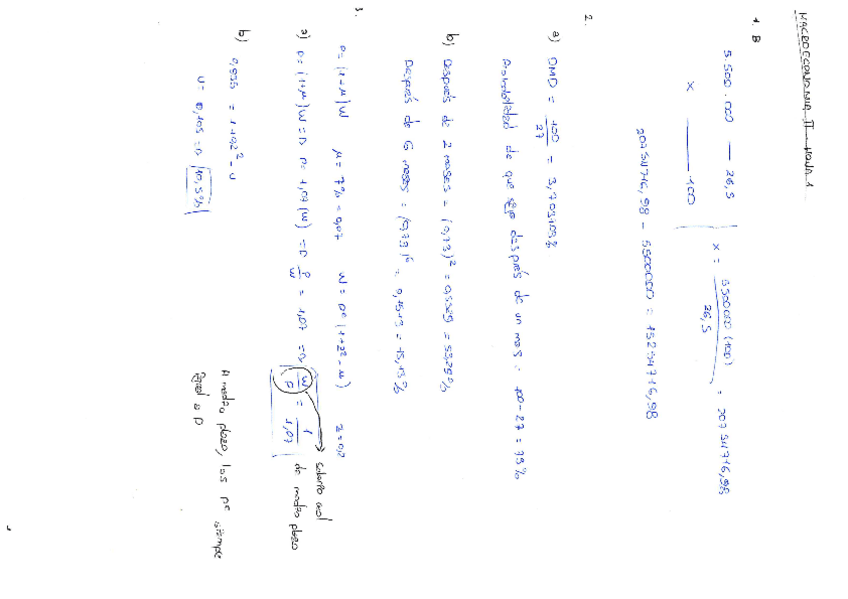 MACROECONOMIA II - HOJA 1
1. B
5.500.000 — 26,5
x — 100
x = 5500000 (100) / 26,5 = 20754716,98
20754716,98 - 5500000 = 15254716,98
2.
a) DMD = 100 / 27 = 3,703703%
Probabilidad de que siga después de un mes = 100 - 27 = 73%
b) Después de 2 meses = (0,73)² = 0,5329 = 53,29%
Después de 6 meses = (0,73)⁶ = 0,1513 = 15,13%
3.
P = (1+μ)W μ = 7% = 0,07 W = Pᵉ (1+z² - u) z = 0,2
a) P = (1+μ)W => P = 1,07 (W) => P/W = 1,07 => W/P = 1 / 1,07
salario real de medio plazo
b) 0,935 = 1 + 0,2² - u
u = 0,105 => 10,5%
A medio plazo, los Pᵉ siempre
igual a P